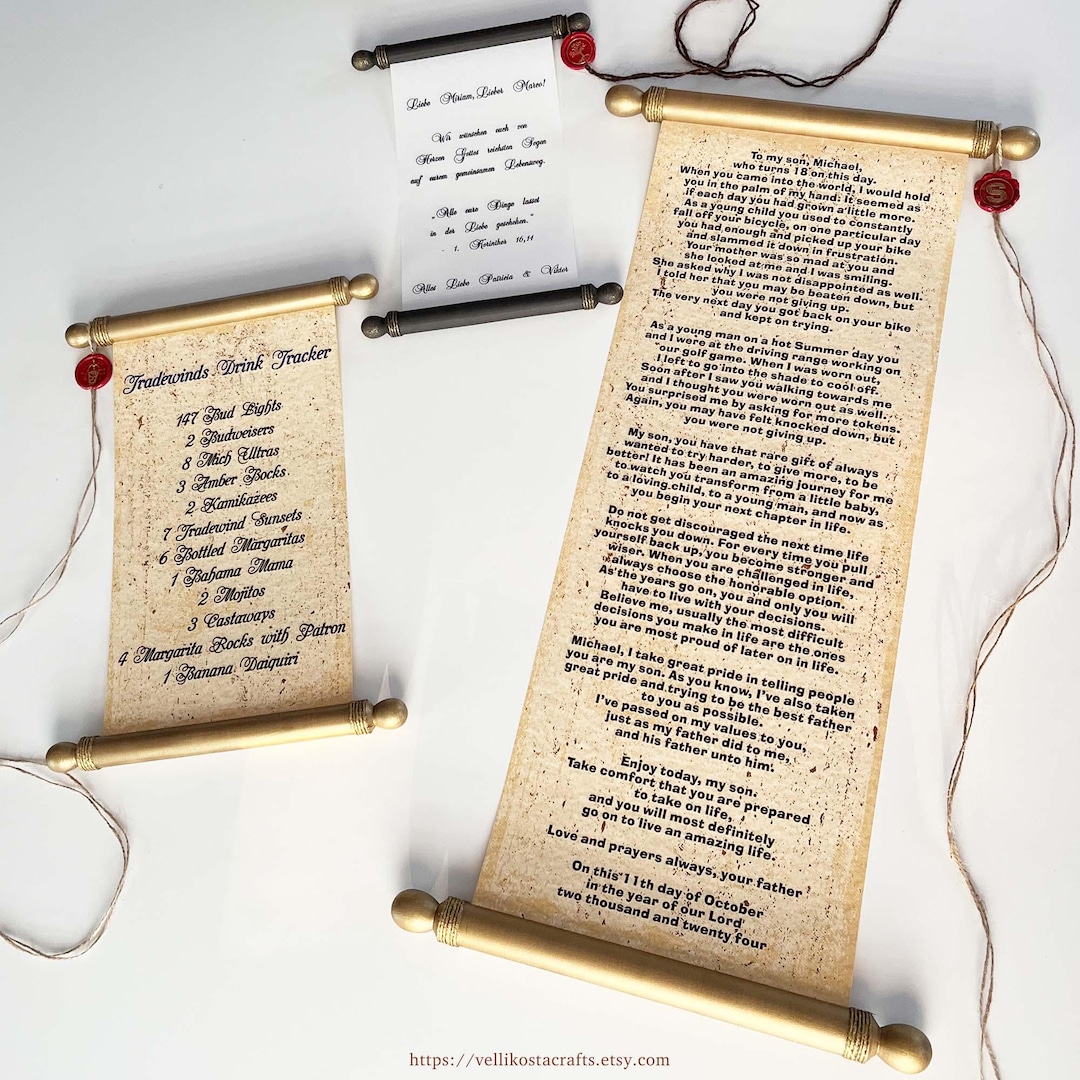 Liebe Miriam, Lieber Marco!
Wir wünschen euch von
Herzen Gottes reichsten Segen
auf eurem gemeinsamen Lebensweg.
„Alle eure Dinge lasset
in der Liebe geschehen."
- 1. Korinther 16,14
Alles Liebe Patricia & Viktor
Tradewinds Drink Tracker
147 Bud Lights
2 Budweisers
8 Mich Ultras
3 Amber Bocks
2 Kamikazees
7 Tradewind Sunsets
6 Bottled Margaritas
1 Bahama Mama
2 Mojitos
3 Castaways
4 Margarita Rocks with Patron
1 Banana Daiquiri
To my son, Michael,
who turns 18 on this day.
When you came into the world, I would hold
you in the palm of my hand. It seemed as
if each day you had grown a little more.
As a young child you used to constantly
fall off your bicycle, on one particular day
you had enough and picked up your bike
and slammed it down in frustration.
Your mother was so mad at you and
she looked at me and I was smiling.
She asked why I was not disappointed as well.
I told her that you may be beaten down, but
you were not giving up.
The very next day you got back on your bike
and kept on trying.
As a young man on a hot Summer day you
and I were at the driving range working on
our golf game. When I was worn out,
I left to go into the shade to cool off.
Soon after I saw you walking towards me
and I thought you were worn out as well.
You surprised me by asking for more tokens.
Again, you may have felt knocked down, but
you were not giving up.
My son, you have that rare gift of always
wanted to try harder, to give more, to be
better! It has been an amazing journey for me
to watch you transform from a little baby,
to a loving child, to a young man, and now as
you begin your next chapter in life.
Do not get discouraged the next time life
knocks you down. For every time you pull
yourself back up, you become stronger and
wiser. When you are challenged in life,
always choose the honorable option.
As the years go on, you and only you will
have to live with your decisions.
Believe me, usually the most difficult
decisions you make in life are the ones
you are most proud of later on in life.
Michael, I take great pride in telling people
you are my son. As you know, I've also taken
great pride and trying to be the best father
to you as possible.
I've passed on my values to you,
just as my father did to me,
and his father unto him.
Enjoy today, my son.
Take comfort that you are prepared
to take on life,
and you will most definitely
go on to live an amazing life.
Love and prayers always, your father
On this 11th day of October
in the year of our Lord
two thousand and twenty four
S
https://vellikostacrafts.etsy.com